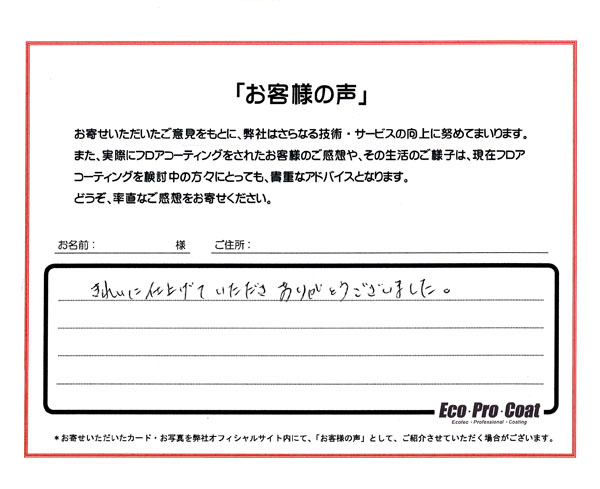 「お客様の声」
お寄せいただいたご意見をもとに、弊社はさらなる技術・サービスの向上に努めてまいります。
また、実際にフロアコーティングをされたお客様のご感想や、その生活のご様子は、現在フロア
コーティングを検討中の方々にとっても、貴重なアドバイスとなります。
どうぞ、率直なご感想をお寄せください。
お名前： 様 ご住所：
きれいに仕上げて いただき ありがとうございました。
Eco・Pro・Coat
Ecotec・Professional・Coating
*お寄せいただいたカード・お写真を弊社オフィシャルサイト内にて、「お客様の声」として、ご紹介させていただく場合がございます。